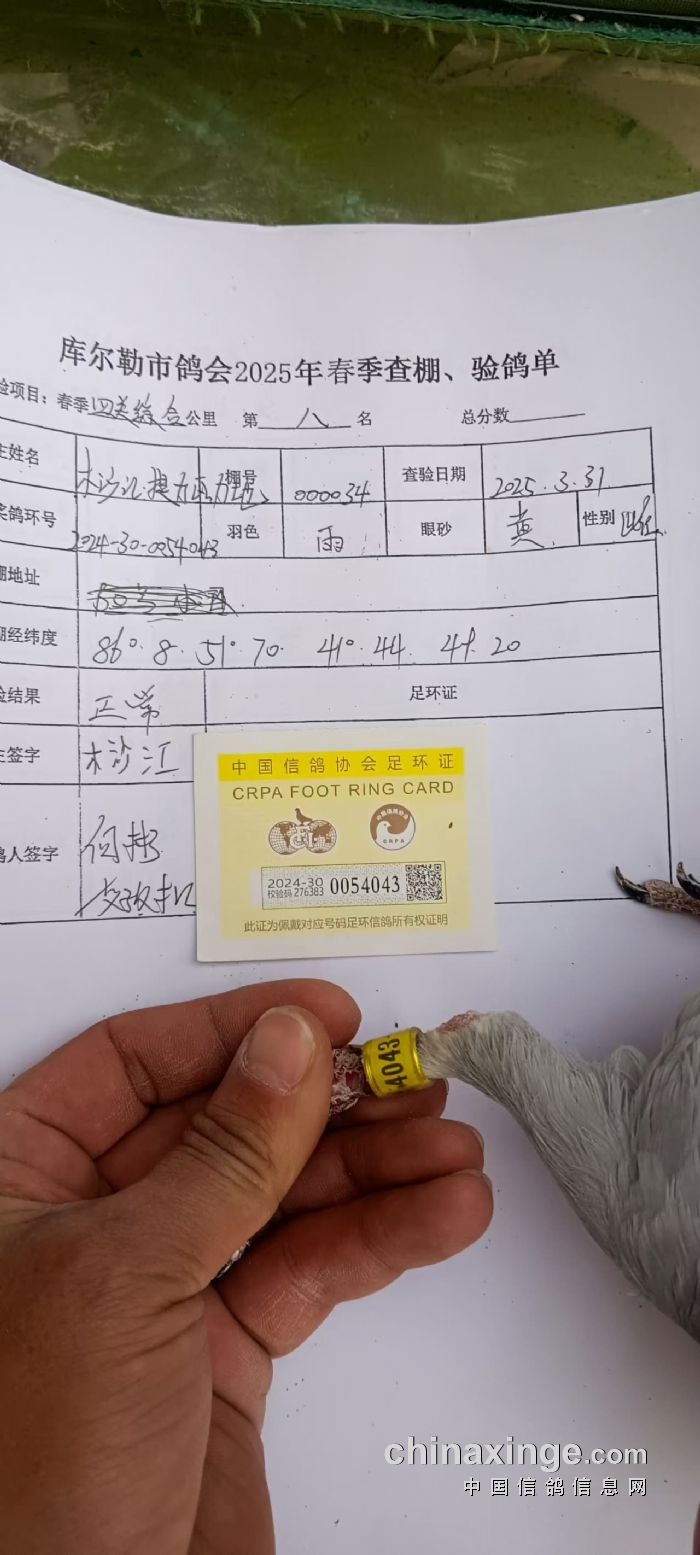 库尔勒市鸽会2025年春季查棚、验鸽单
验项目：春季四关综合公里 第 八 名 总分数
主姓名 木沙江·提 棚号 000034 查验日期 2025.3.31
奖鸽环号 2024-30-0054043 羽色 雨 眼砂 黄 性别 雌
棚地址
棚经纬度 86°.8.51.70. 41°.44. 41.20
验结果 正常 足环证
主签字 木沙江
鸽人签字 何
中国信鸽协会足环证
CRPA FOOT RING CARD
CRPA
2024-30 0054043
校验码 276383
此证为佩戴对应号码足环信鸽所有权证明
4043
chinaxinge.com
中国信鸽信息网